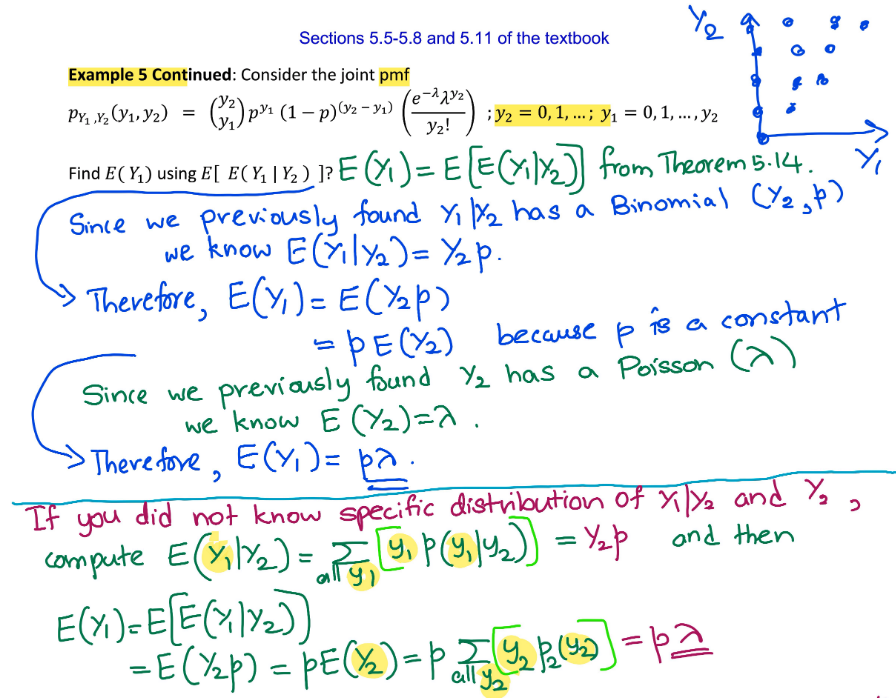 Sections 5.5-5.8 and 5.11 of the textbook
Y₂
Example 5 Continued: Consider the joint pmf
p_{Y₁,Y₂}(y₁, y₂) = (y₂ y₁) p^{y₁} (1 − p)^{(y₂ − y₁)} (e^{−λ}λ^{y₂} / y₂!) ; y₂ = 0, 1, ... ; y₁ = 0, 1, ..., y₂
Y₁
Find E(Y₁) using E[ E(Y₁ | Y₂ ) ]? E(Y₁) = E[E(Y₁|Y₂)] from Theorem 5.14.
Since we previously found Y₁|Y₂ has a Binomial (Y₂, p)
we know E(Y₁|Y₂) = Y₂p.
Therefore, E(Y₁) = E(Y₂p)
= pE(Y₂) because p is a constant
Since we previously found Y₂ has a Poisson (λ)
we know E(Y₂) = λ.
Therefore, E(Y₁) = pλ.
If you did not know specific distribution of Y₁|Y₂ and Y₂,
compute E(Y₁|Y₂) = Σ_{all y₁} [y₁ p(y₁|y₂)] = Y₂p and then
E(Y₁) = E[E(Y₁|Y₂)]
= E(Y₂p) = pE(Y₂) = p Σ_{all y₂} [y₂ p₂(y₂)] = pλ